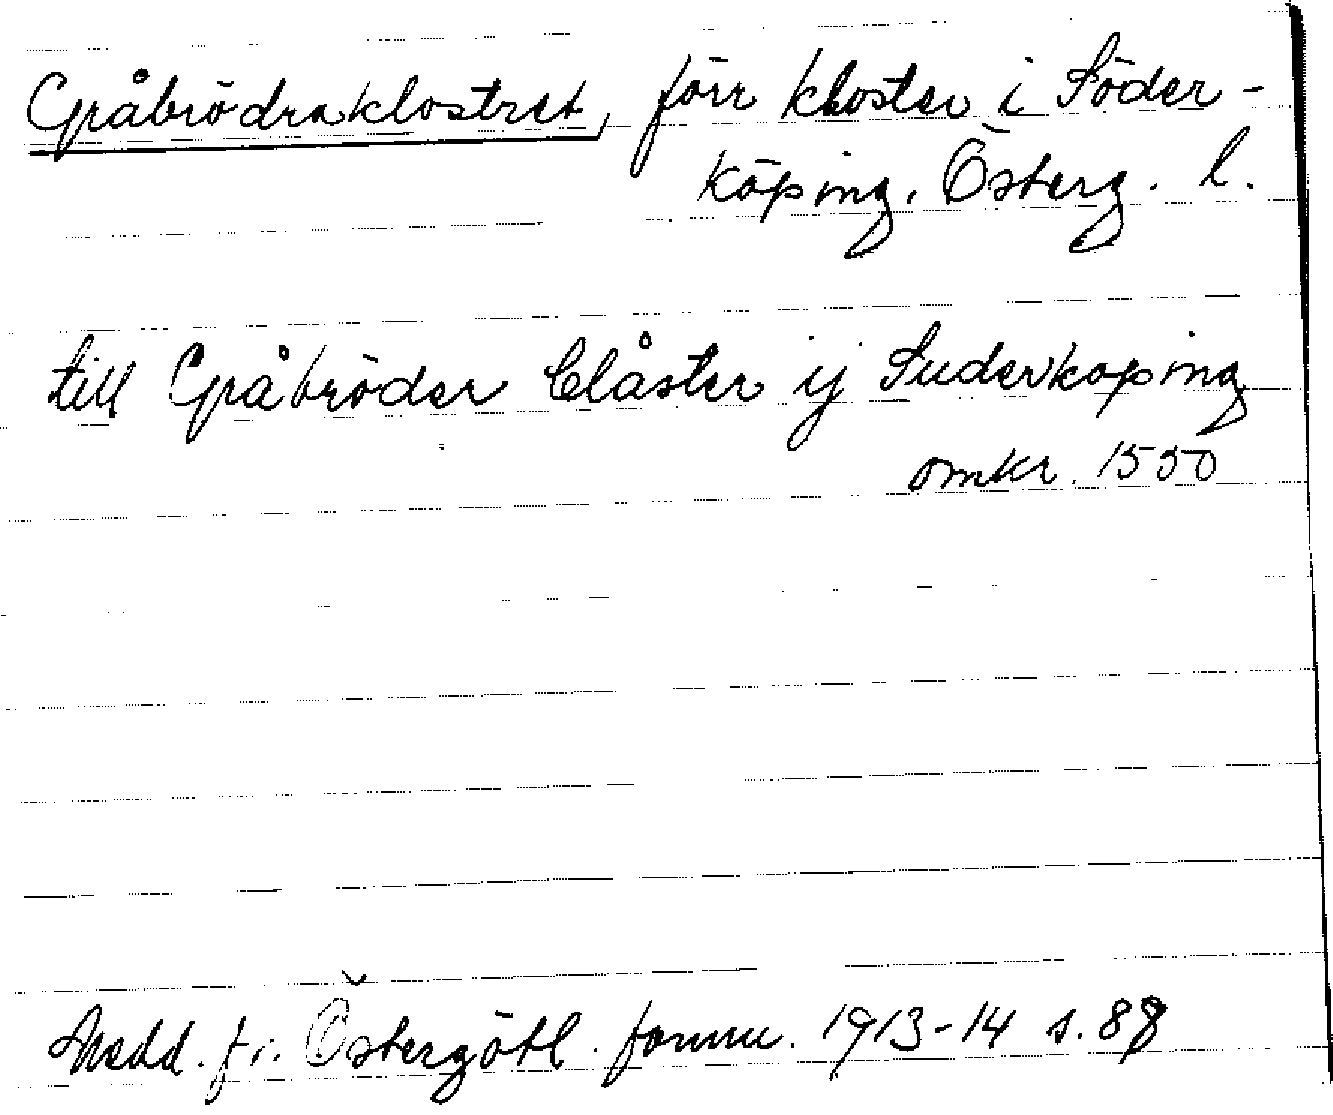 Gråbrödraklostret, förr kloster i Söder-
köping, Österg. l.
till Gråbröder Clåster ij Suderkoping
omkr. 1550
Medd. fr. Östergötl. fornm. 1913-14 s. 88